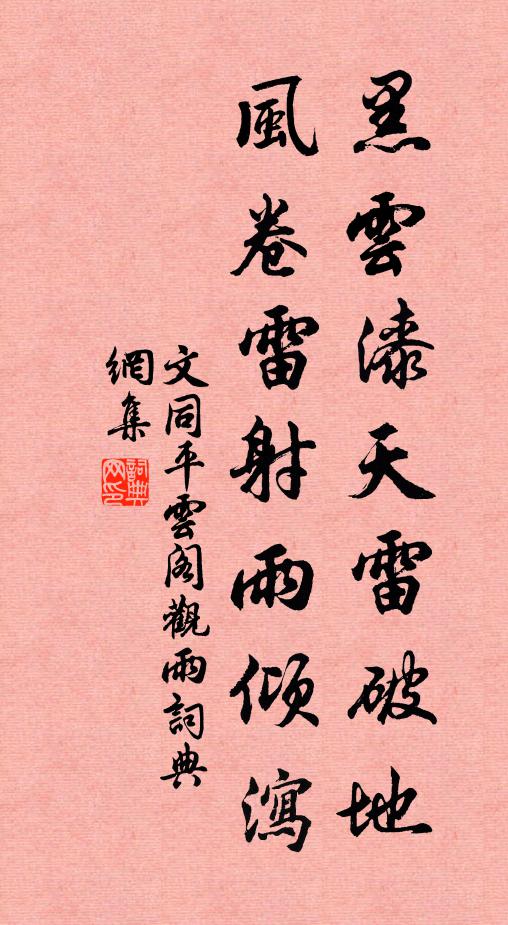 黑雲漆天雷破地
風卷雷射雨傾瀉
文同平雲閣觀雨詞典
網集
詞典网印